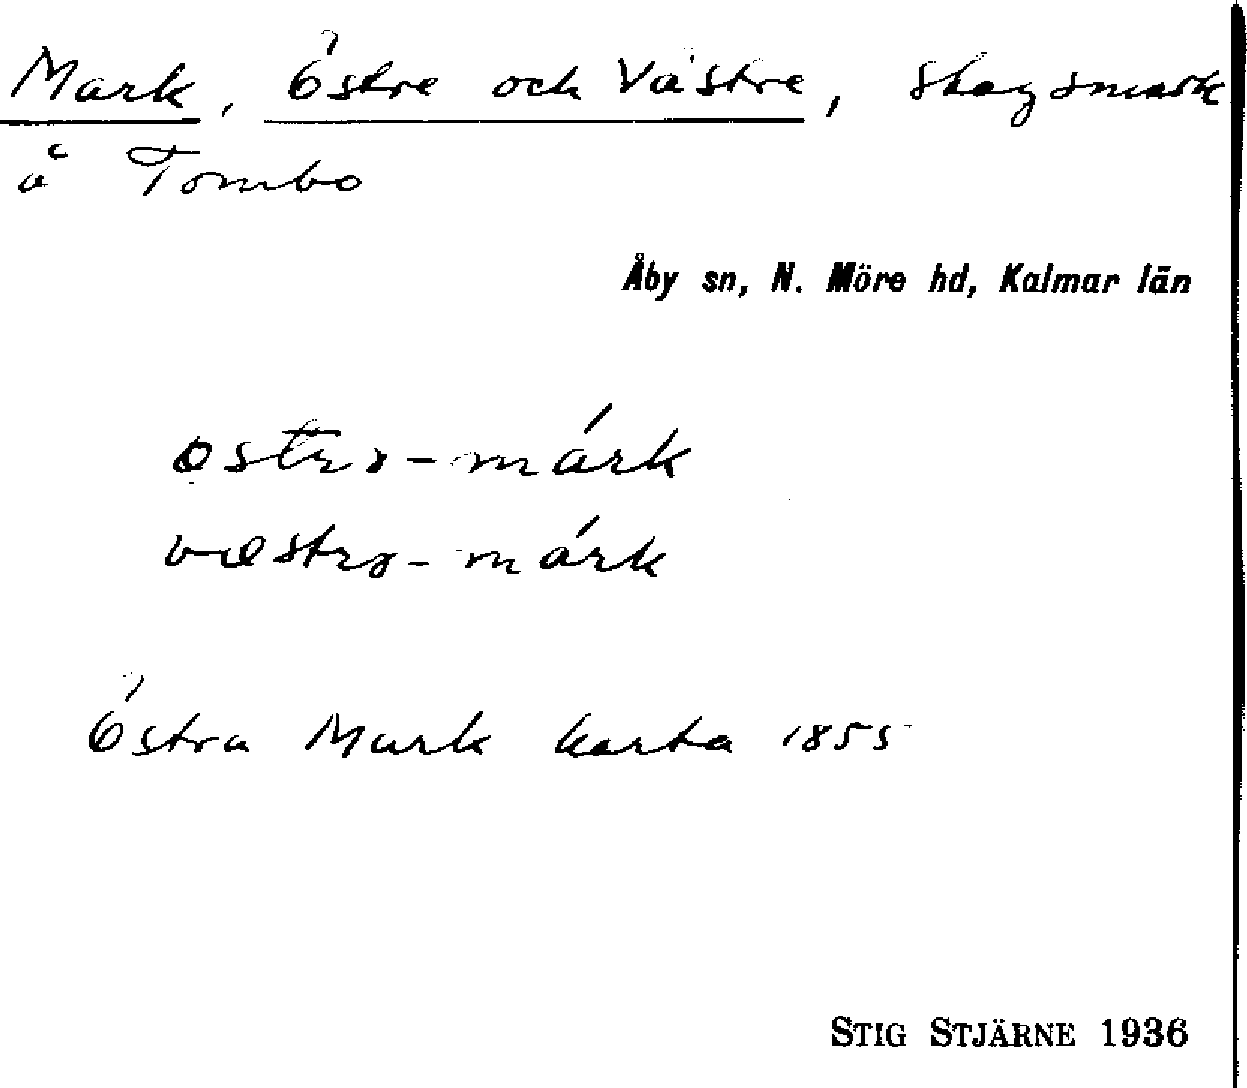 Mark, Östre och Västre, skogsmark
å Tombo
Åby sn, N. Möre hd, Kalmar län
ostrə-márk
væstrə-márk
Östra Mark karta 1855
STIG STJÄRNE 1936